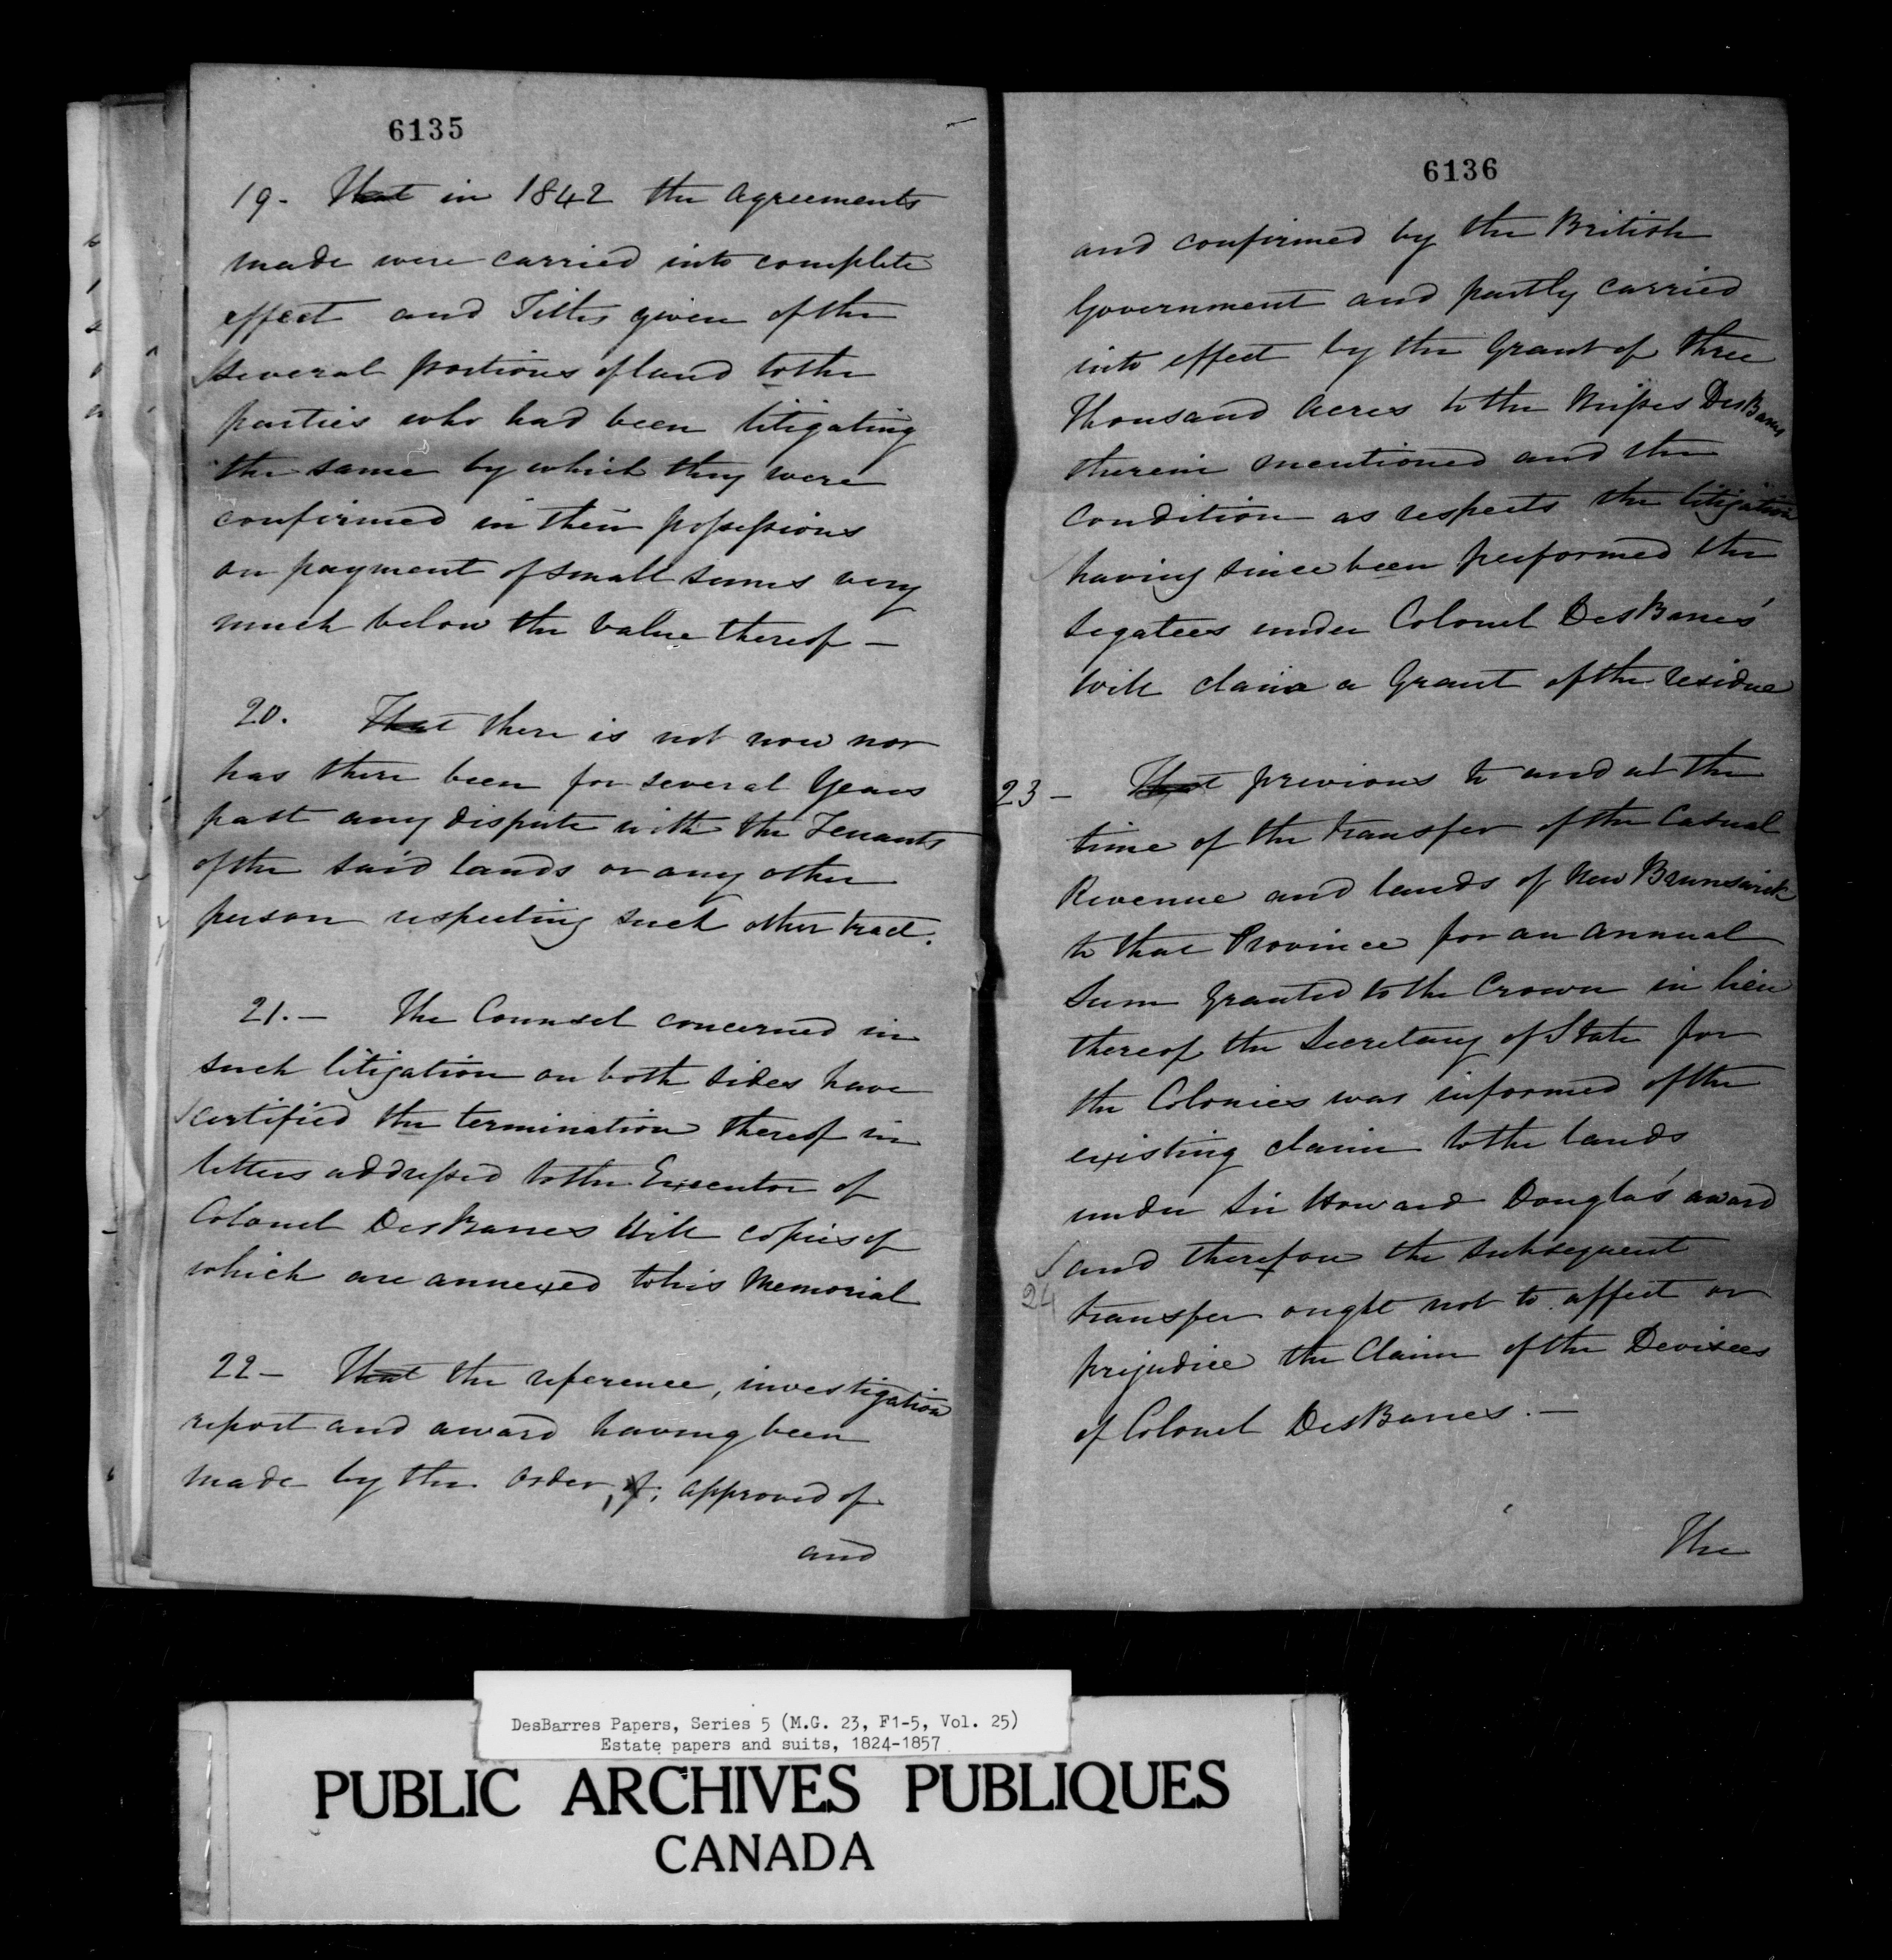 6135
19. That in 1842 the agreements
made were carried into complete
effect and Titles given of the
several portions of land to the
parties who had been litigating
the same by which they were
confirmed in their possessions
on payment of small sums very
much below the value thereof —
20. That there is not now nor
has there been for several Years
past any dispute with the Tenants
of the said lands or any other
person respecting such other tract.
21. — The Counsel concerned in
such litigation on both sides have
certified the termination thereof in
letters addressed to the Executor of
Colonel DesBarres Will copies of
which are annexed to his Memorial
22 — That the reference, investigation
report and award having been
made by the order, of, approved of
and
6136
and confirmed by the British
Government and partly carried
into effect by the Grant of three
Thousand Acres to the Misses DesBarres
therein mentioned and the
condition as respects the litigation
having since been performed the
legatees under Colonel DesBarres'
Will claim a Grant of the residue
23 — That previous to and at the
time of the transfer of the Casual
Revenue and lands of New Brunswick
to that Province for an annual
Sum granted to the Crown in lieu
thereof the Secretary of State for
the Colonies was informed of the
existing claim to the lands
under Sir Howard Douglas' award
and therefore the subsequent
24
transfer ought not to affect or
prejudice the Claim of the Devisees
of Colonel DesBarres. —
The
DesBarres Papers, Series 5 (M.G. 23, F1-5, Vol. 25)
Estate papers and suits, 1824-1857
PUBLIC ARCHIVES PUBLIQUES
CANADA